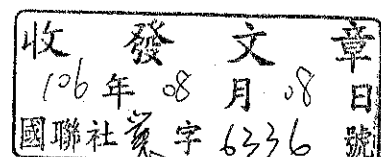 收發文章
106年08月08日
國聯社字6336號